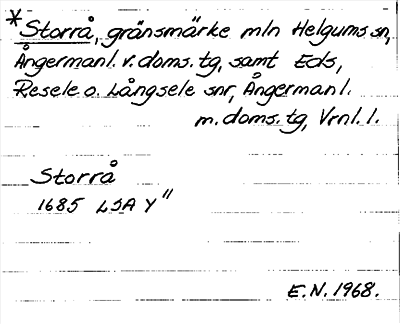 * Storrå, gränsmärke mln Helgums sn,
Ångermanl. v. doms. tg, samt Eds,
Resele o. Långsele snr, Ångermanl.
m. doms. tg, Vrnl. l.
Storrå
1685 LSA Y"
E.N. 1968.